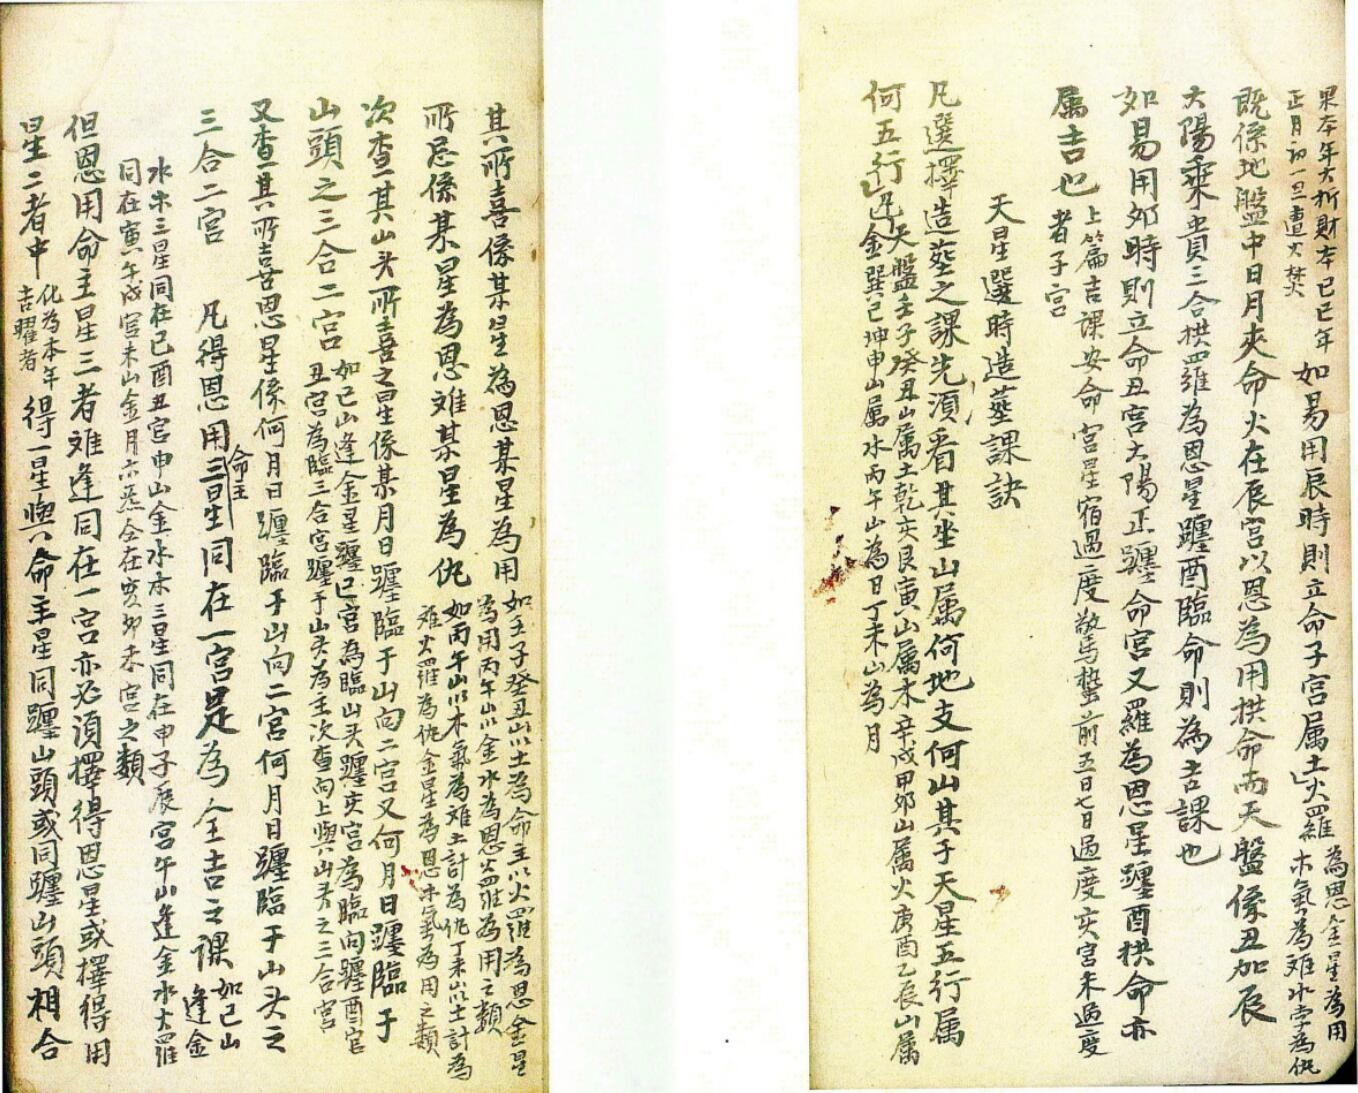 果本年大折財本己巳年
正月初一旦遭火焚
如易用辰時則立命子宮属土火羅
為恩金星為用
木氣為难水孛為仇
既係地盤中日月夾命火在辰宮以恩為用拱命而天盤係丑加辰
太陽乘貴三合拱羅為恩星躔酉臨命則為吉課也
如易用卯時則立命丑宮太陽正躔命宮又羅為恩星躔酉拱命亦
属吉也
上篇吉課安命宮星宿過度驚蟄前五日七日過度亥宮未過度
者子宮
天星選時造葬課訣
凡選擇造葬之課先須看其坐山属何地支何山其于天星五行属
何五行
凡天盤壬子癸丑山属土乾亥艮寅山属木辛戌甲卯山属火庚酉乙辰山属
金巽巳坤申山属水丙午山為日丁未山為月
其所喜係某星為恩某星為用
如壬子癸丑山以土為命主以火羅為恩金星
為用丙午山以金水為恩火羅為用之類
所忌係某星為恩难某星為仇
如丙午山以木氣為难土計為仇丁未山以土計為
难火羅為仇金星為恩木氣為用之類
次查其山头所喜之星係某月日躔臨于山向二宮又何月日躔臨于
山頭之三合二宮
如巳山逢金星躔巳宮為臨山头躔亥宮為臨向躔酉宮
丑宮為臨三合宮躔于山头為主次查向上與山头之三合宮
又查其所喜恩星係何月日躔臨于山向二宮何月日躔臨于山头之
三合二宮 凡得恩用命主三星同在一宮是為全吉之課
如巳山
逢金
水木三星同在巳酉丑宮申山金水木三星同在申子辰宮午山逢金水火羅
同在寅午戌宮未山金月木炁仝在亥卯未宮之類
但恩用命主星三者难逢同在一宮亦必須擇得恩星或擇得用
星二者中
化為本年
吉曜者
得一星與命主星同躔山頭或同躔山頭相合